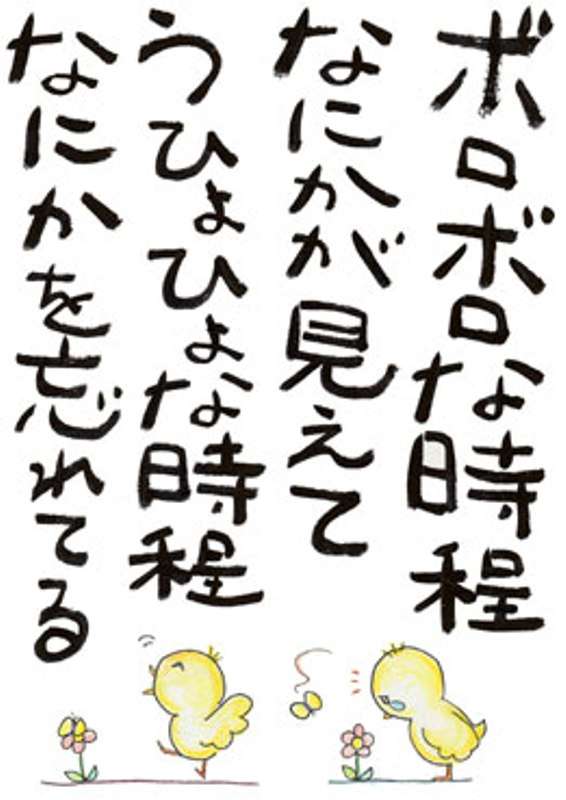 ボロボロな時程
なにかが見えて
うひょひょな時程
なにかを忘れてる